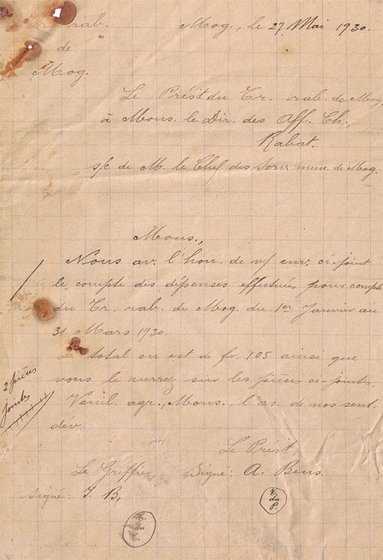 rab. Mog., le 27 Mai 1930.
de
Mog.
Le Prést du Tr. rab. de Mog
à Mons. le Dir. des Aff. Ch.,
Rabat.
s/c de M. le Chef des Serv. mun. de Mog.
Mons.,
Nous av. l'hon. de v/ env. ci-joint
le compte des dépenses effectuées pour compte
du Tr. rab. de Mog. du 1er Janvier au
31 Mars 1930.
Le total en est de fr. 105 ainsi que
vous le verrez sur les pièces ci-jointes.
2 pièces
jointes
Veuil. agr., Mons. l'as. de nos sent.
dev.
Le Prést
Le Greffier Signé: A. Bens
Signé: J. B.